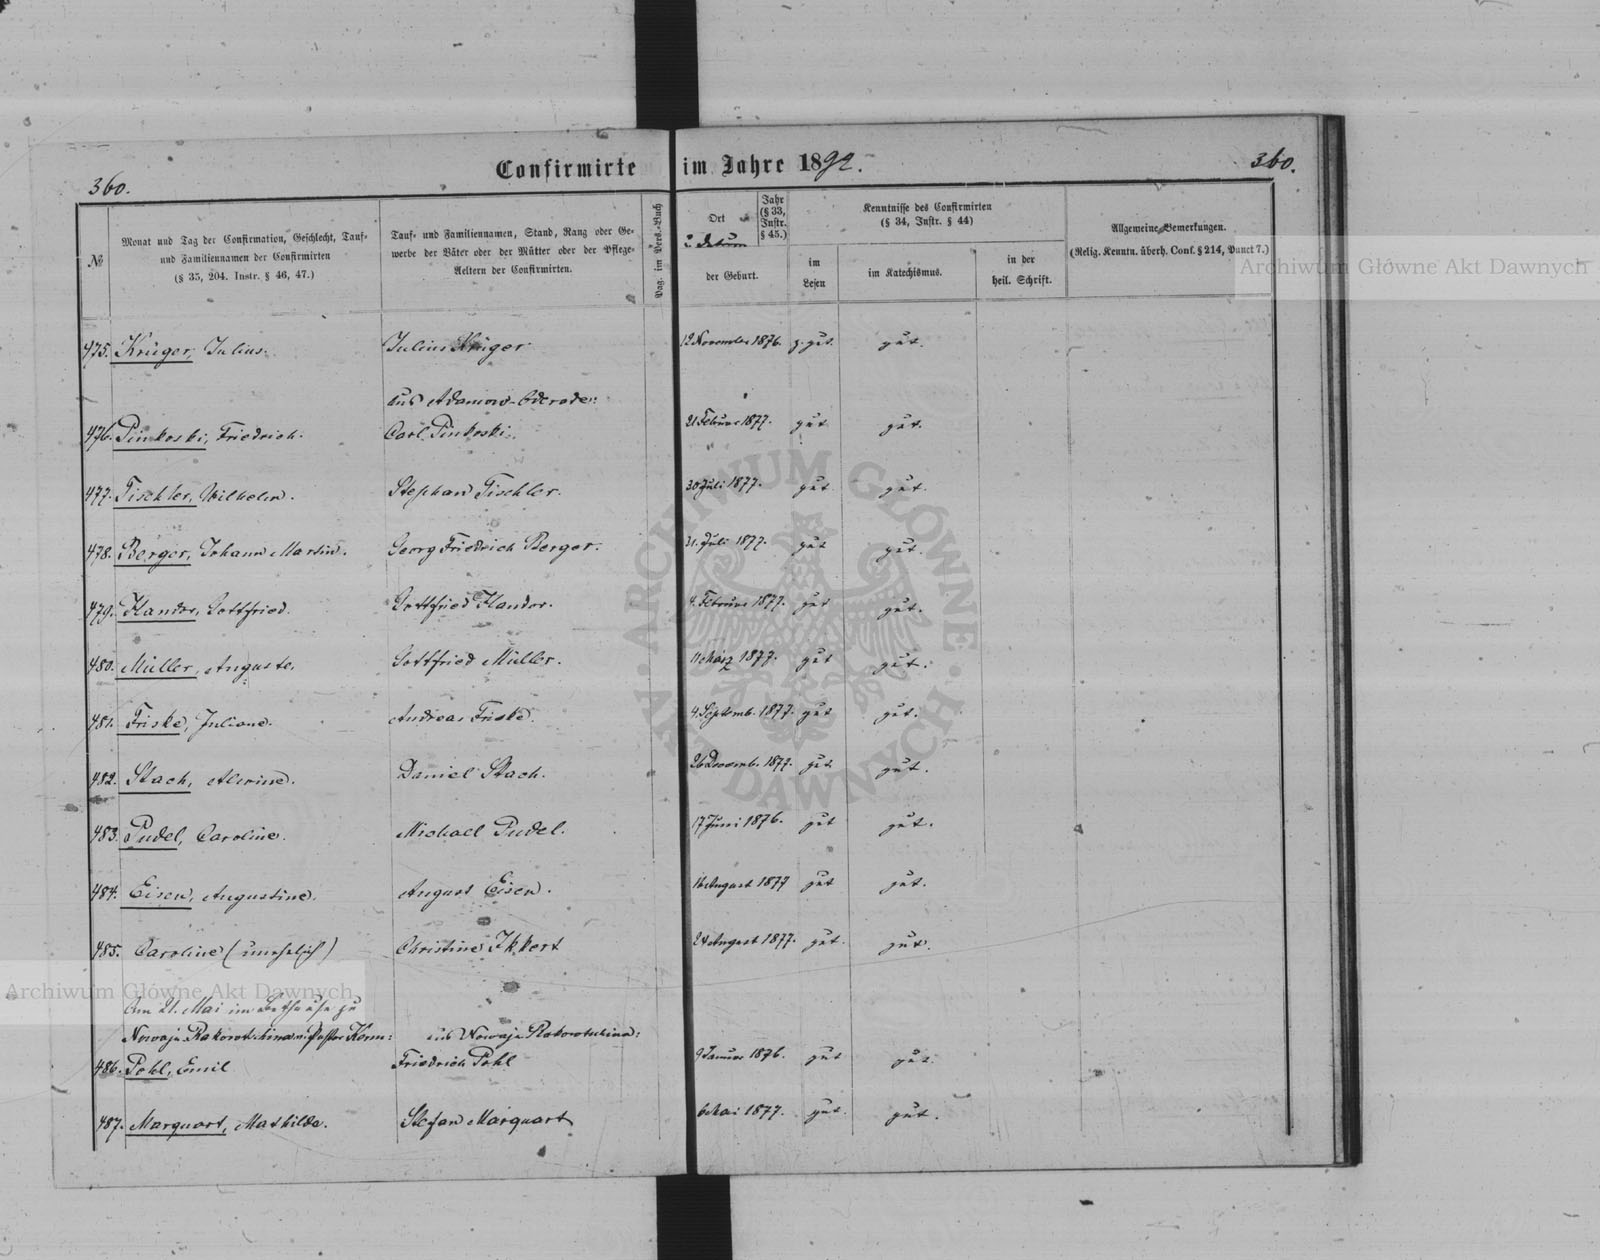 Confirmirte im Jahre 1892.
360.
360.
№
Monat und Tag der Confirmation, Geschlecht, Tauf-
und Familiennamen der Confirmirten
(§ 35, 204. Instr. § 46, 47.)
Tauf- und Familiennamen, Stand, Rang oder Ge-
werbe der Väter oder der Mütter oder der Pflege-
Aeltern der Confirmirten.
Pag. im Pers.-Buch
Ort
Jahr
(§ 33,
Instr.
§ 45.)
der Geburt.
Kenntnisse des Confirmirten
(§ 34, Instr. § 44)
im
Lesen
im Katechismus.
in der
heil. Schrift.
Allgemeine Bemerkungen.
(Relig. Kenntn. überh. Conf. § 214, Punct 7.)
Archiwum Główne Akt Dawnych
475. Krüger, Julius. Julius Krüger. 12 November 1876. z. gut. gut.
aus Adamow-Oderode:
476. Pinkoski, Friedrich. Carl Pinkoski. 21 Februar 1877. gut gut.
477. Tischler, Wilhelm. Stephan Tischler. 30 Juli 1877. gut gut.
478. Berger, Johann Martin. Georg Friedrich Berger. 21. Juli 1877. gut gut.
479. Kandor, Gottfried. Gottfried Kandor. 4. Februar 1877. gut gut.
480. Müller, Auguste. Gottfried Müller. 11 März 1877. gut gut.
481. Friske, Juliane. Andreas Friske. 4. Septemb. 1877. gut gut.
482. Stach, Alwine. Daniel Stach. 26 Decemb. 1877. gut gut.
483. Pudel, Caroline. Michael Pudel. 17 Juni 1876. gut gut.
484. Eisen, Augustine. August Eisen. 16 August 1877 gut gut.
485. Caroline (unehelich) Christine Ikkert 24 August 1877. gut. gut.
Archiwum Główne Akt Dawnych
Am 21. Mai im Bethause zu
Nowaja Rakowtschina v. Pastor Kerm: aus Nowaja Rakowtschina:
486. Pohl, Emil Friedrich Pohl 9 Januar 1876. gut gut.
487. Marquart, Mathilda. Stefan Marquart 6 Mai 1877. gut. gut.
ARCHIWUM GŁÓWNE AKT DAWNYCH